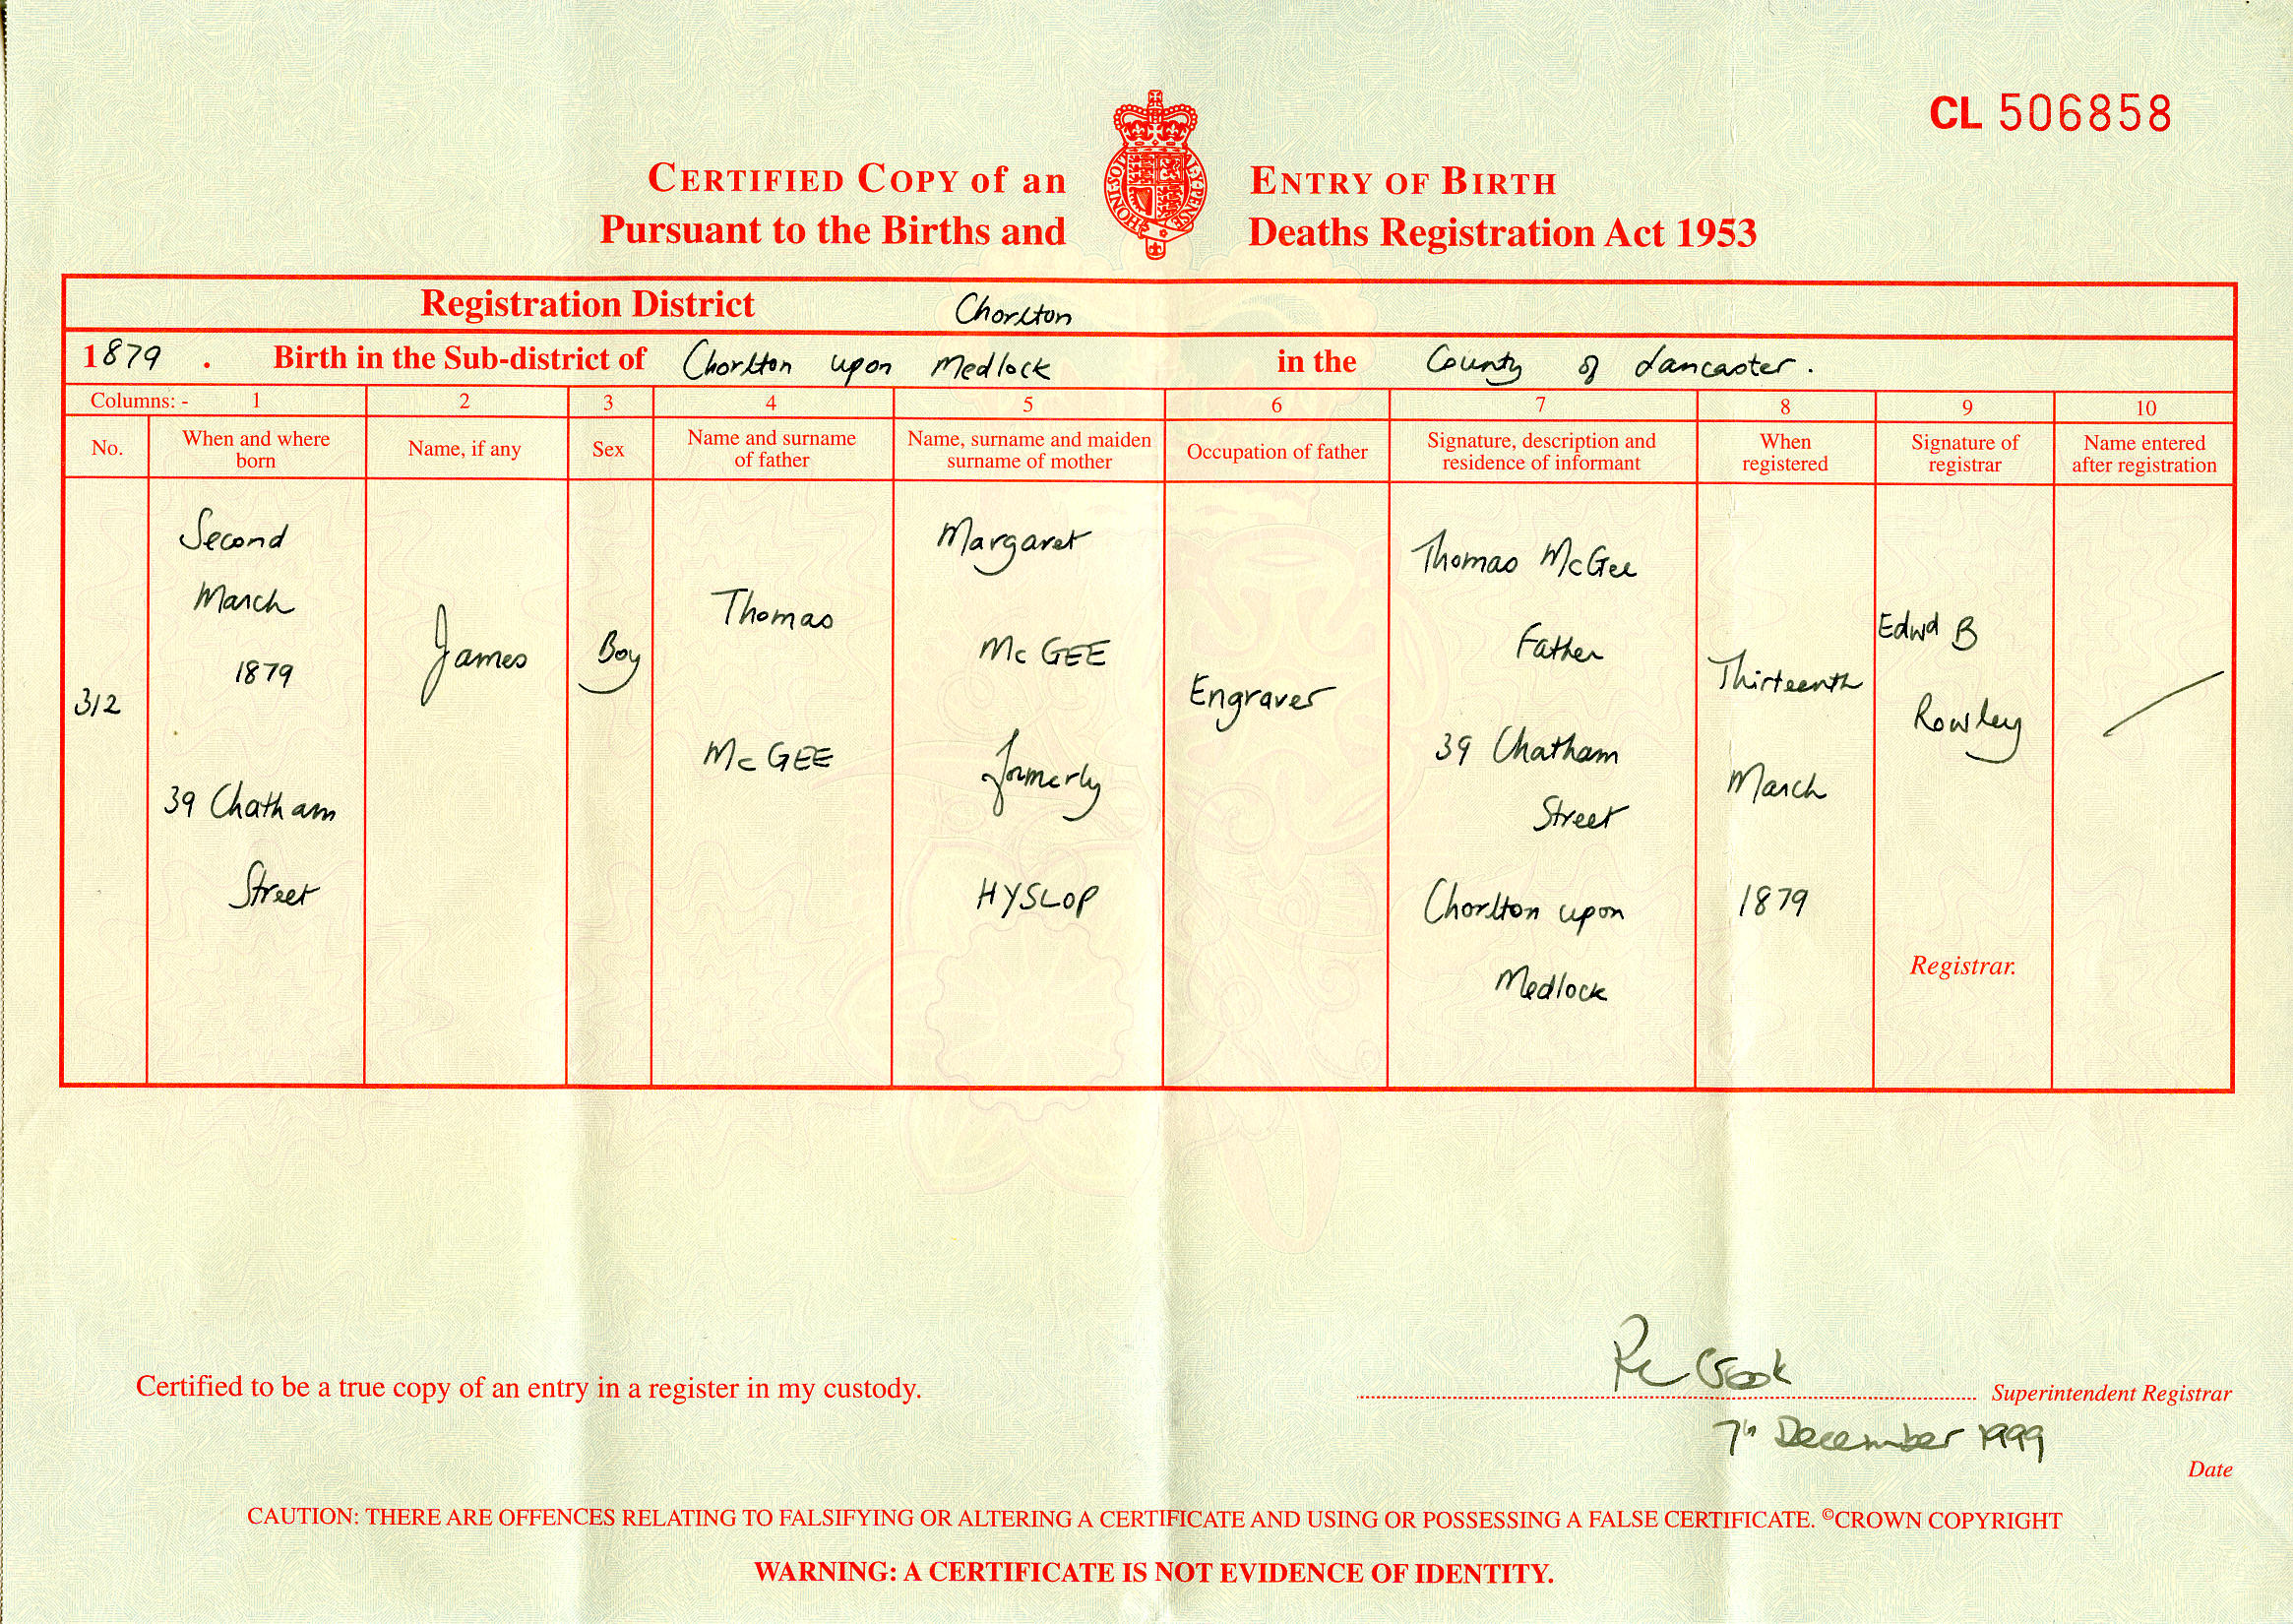 CL 506858
CERTIFIED COPY of an ENTRY OF BIRTH
Pursuant to the Births and Deaths Registration Act 1953
HONI·SOIT AL·Y·PENSE
Registration District Chorlton
1879. Birth in the Sub-district of Chorlton upon Medlock in the County of Lancaster.
Columns: - 1 2 3 4 5 6 7 8 9 10
No.
When and where
born
Name, if any
Sex
Name and surname
of father
Name, surname and maiden
surname of mother
Occupation of father
Signature, description and
residence of informant
When
registered
Signature of
registrar
Name entered
after registration
312
Second
March
1879
39 Chatham
Street
James
Boy
Thomas
McGEE
Margaret
McGEE
formerly
HYSLOP
Engraver
Thomas McGee
Father
39 Chatham
Street
Chorlton upon
Medlock
Thirteenth
March
1879
Edwd B
Rowley
Registrar.
Certified to be a true copy of an entry in a register in my custody.
Crook
Superintendent Registrar
7th December 1999
Date
CAUTION: THERE ARE OFFENCES RELATING TO FALSIFYING OR ALTERING A CERTIFICATE AND USING OR POSSESSING A FALSE CERTIFICATE. ©CROWN COPYRIGHT
WARNING: A CERTIFICATE IS NOT EVIDENCE OF IDENTITY.